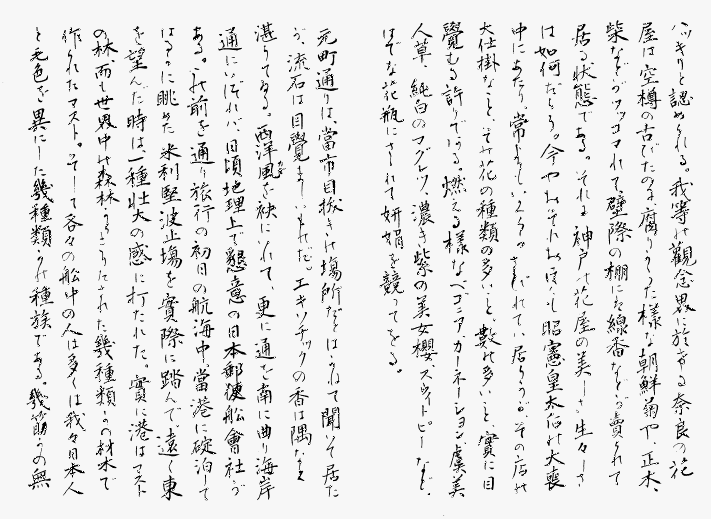 ハッキリと認められる。我等の觀念界に於ける奈良の花
屋は空樽の古びたのに腐りかゝつた様な朝鮮菊や正木、
柴などがツッコマれて、壁際の棚には線香などが賣られて
居る状態である。それに神戸の花屋の美しさ生々しさ
は如何だらう。今やおそれおほくも昭憲皇太后の大喪
中にあたり常よりは
されて居らうが、その店の
大仕掛なこと、その花の種類の多いこと、數の多いこと、實に目
覺むる許りである。燃える様なベゴニア、カーネーション、虞美
人草、純白のマグレツ、濃き紫の美女櫻、スウィトピーなど、
はでな花瓶にさゝれて妍娟を競つてをる。
元町通りは、當市目拔きの場所などはかねて聞いて居た
が、流石は目覺ましいものだ。エキゾチックの香は隅なく
湛りてゐる。西洋風を袂にいれて、更に通を南に曲り海岸
通にいづれバ、旧頃地理上で懇意の日本郵便船會社が
ある。此前を通り旅行の初日の航海中當港に碇泊して
はるかに眺めた米利堅波止塲を實際に踏んで遠く東
を望んだ時は、一種壮大の感に打たれた。實に港はマスト
の林、而も世界中の森林からきりだされた幾種類かの材木で
作られたマスト。そして各々の船中の人は多くは我々日本人
と毛色を異にした幾種類かの種族である。幾筋かの無